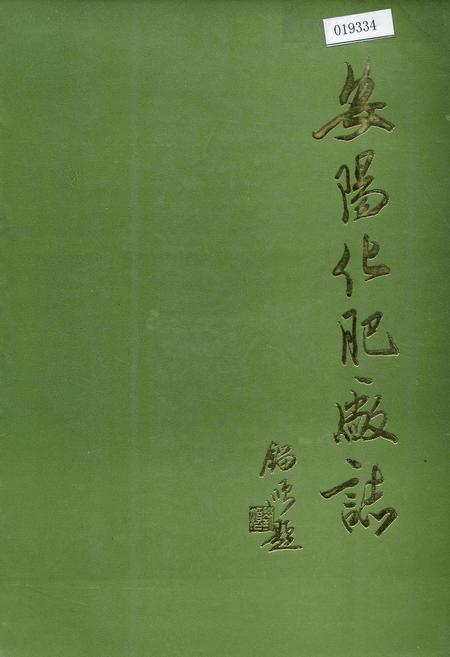 019334
安陽化肥廠誌
題